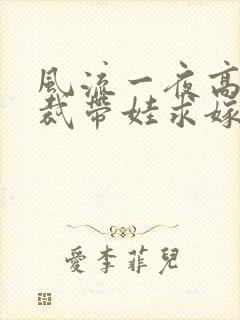 風流一夜高
裁帶娃求嫁
愛李菲兒